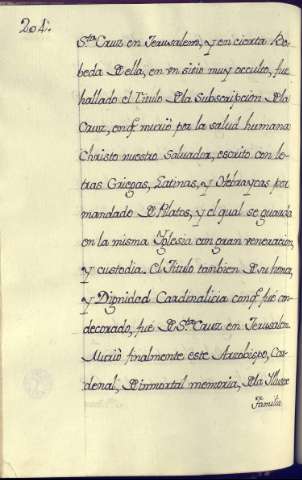 204.
Sta. Cruz en Jerusalem, y en cierta Bo-
beda De ella, en vn sitio muy occulto, fue
hallado el Titulo De la Subscripcion De la
Cruz, en q.e murio por la salud humana
Christo nuestro Salvador, escrito con le-
tras Griegas, Latinas, y Hebraycas por
mandado De Pilatos, y el qual se guarda
en la misma Yglesia con gran veneracion,
y custodia. El Titulo tambien De su honra,
y Dignidad Cardinalicia con q.e fue con-
decorado, fue De Sta. Cruz en Jerusalem.
Murio finalmente este Arzobispo, Car-
denal, De inmortal memoria, De la Illustre
Familia